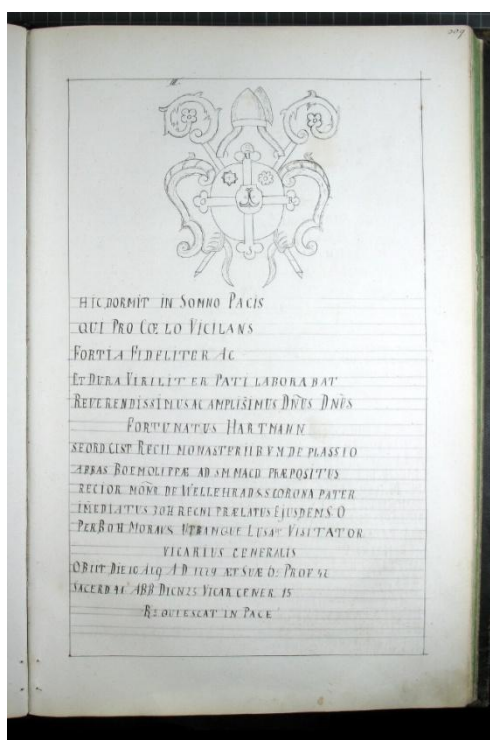 209
HIC DORMIT IN SOMNO PACIS
QUI PRO CŒLO VIGILANS
FORTIA FIDELITER AC
ET DURA VIRILITER PATI LABORABAT
REVERENDISSIMUS AC AMPLISIMUS DNŪS DNŪS
FORTUNATUS HARTMANN
SE ORD CIST REGII MONASTERII BVM DE PLASSIO
ABBAS BOEMOLIPPÆ AD SM MAGD PRÆPOSITUS
RECTOR MONR DE WELLEHRAD S CORONA PATER
IMEDIATUS JOH REGNI PRÆLATUS EJUSDEM S O
PER BOH MORAUS UTRAMQUE LUSAT VISITATOR
VICARIUS GENERALIS
OBIIT DIE 10 AUG A D 1779 ÆT SUÆ PROF 42
SACERD 41 ABB DIGN 25 VICAR GENER 15
REQUIESCAT IN PACE